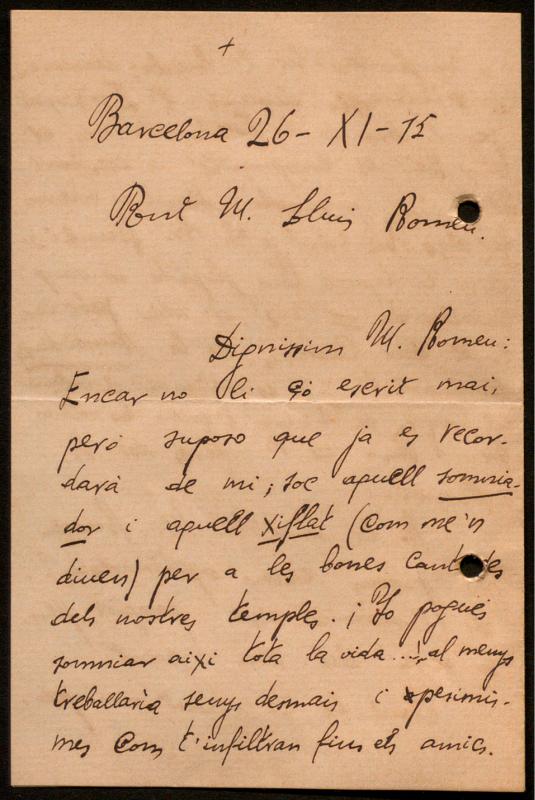 +
Barcelona 26-XI-15
Rnt M. Lluis Romeu.
Dignissim M. Romeu:
Encar no li he escrit mai,
peró suposo que ja es recor-
dará de mi; soc aquell somnia-
dor i aquell xiflat (com me'n
diuen) per a les bones cantades
dels nostres temples. ¡Jo pogués
somniar aixi tota la vida...! al menys
treballaría senys desmais i pesimis-
mes com t'infiltran fins els amics.